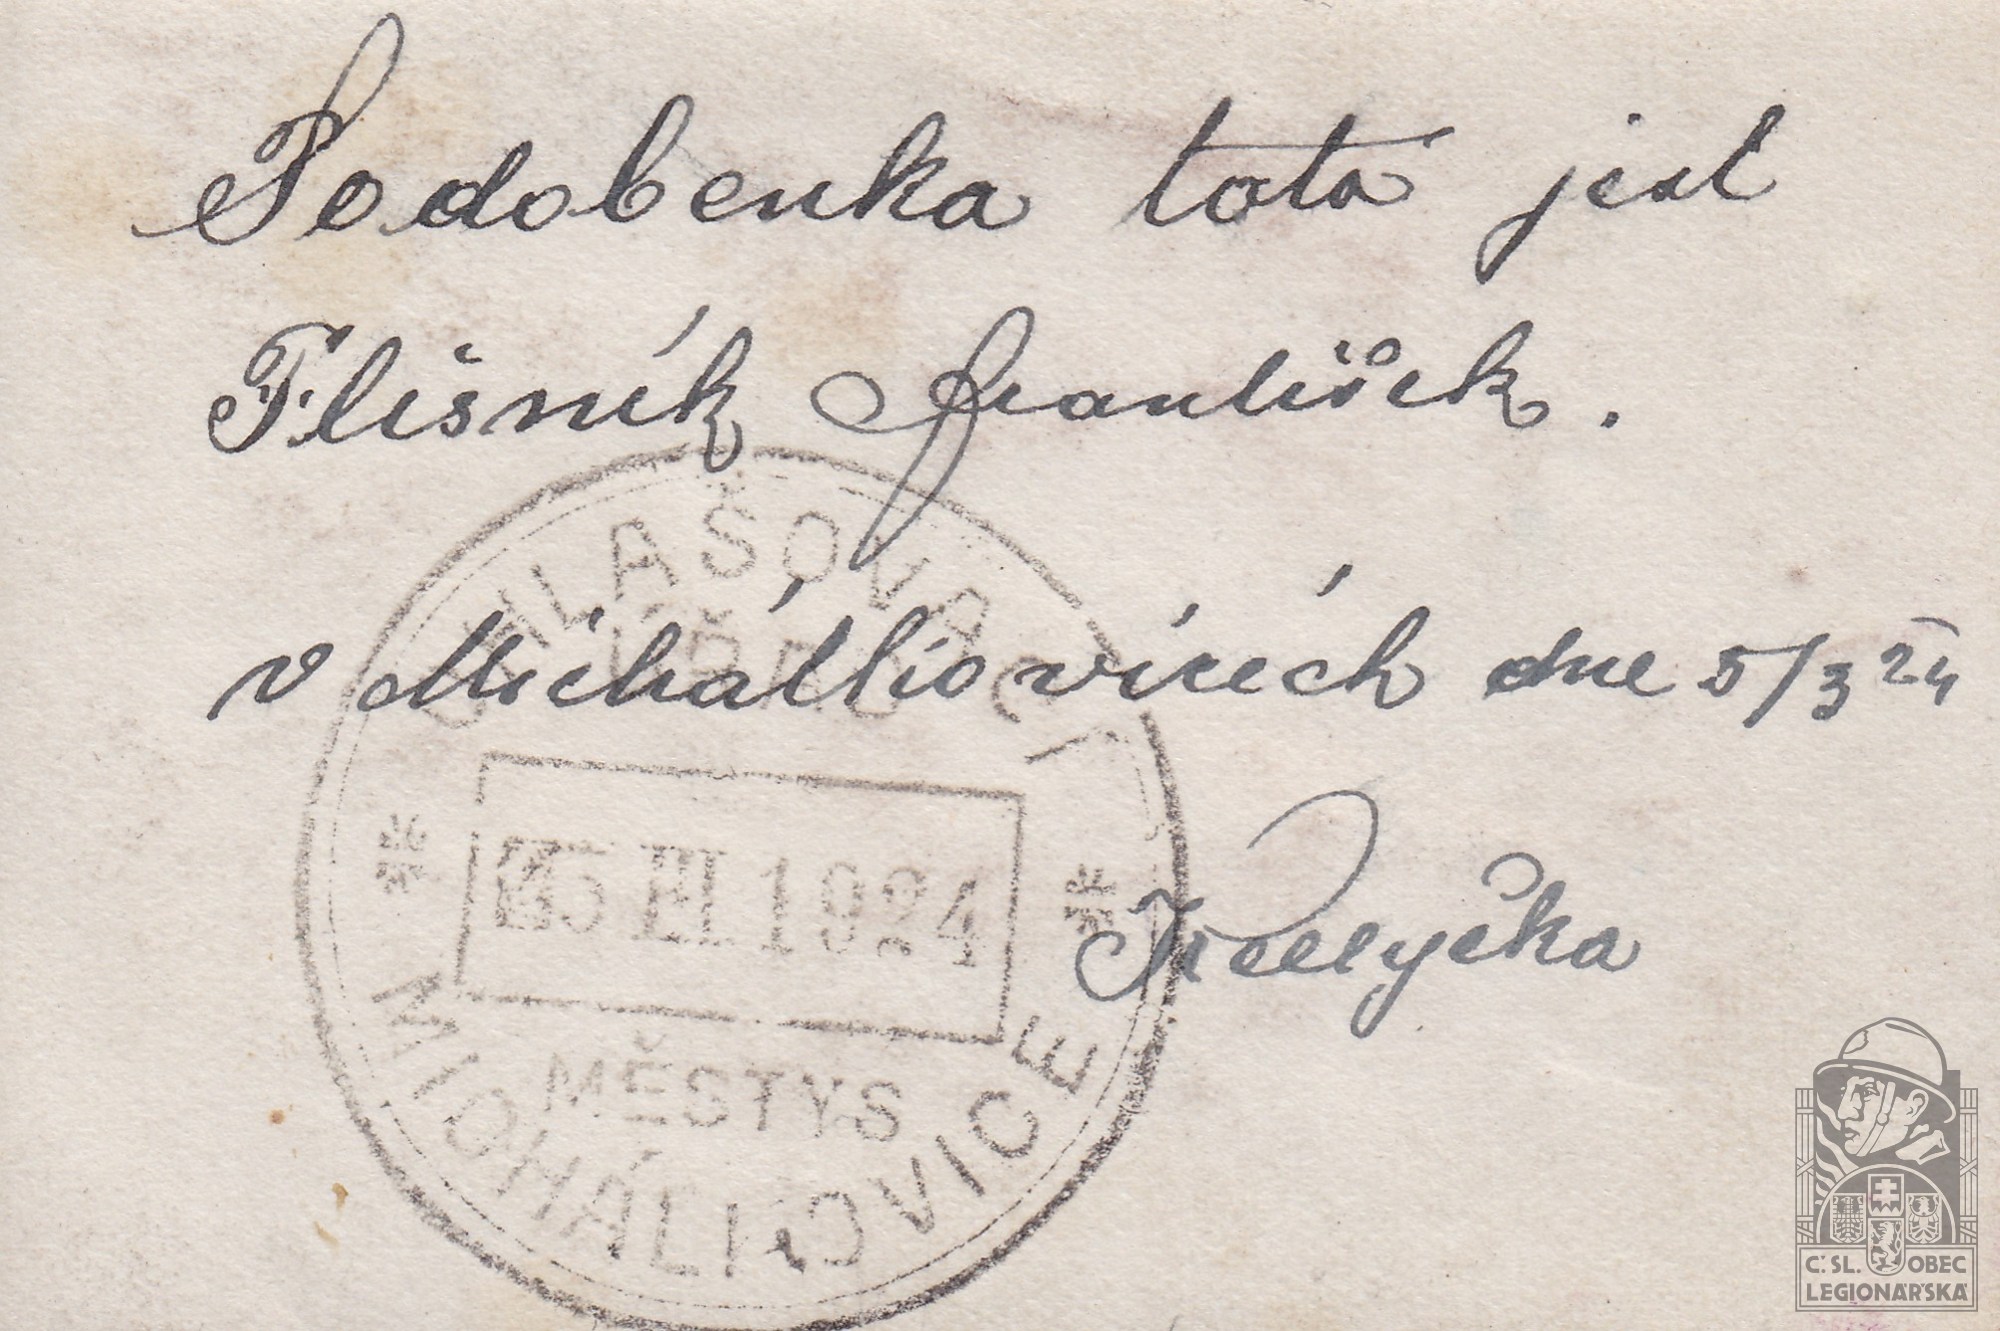 Podobenka tato jest
Flišník František.
v Michálkovicích dne 5/3 24
OHLAŠOVACÍ
ÚŘAD
5 III 1924
MĚSTYS
MICHÁLKOVICE
Č.SL. OBEC
LEGIONÁŘSKÁ